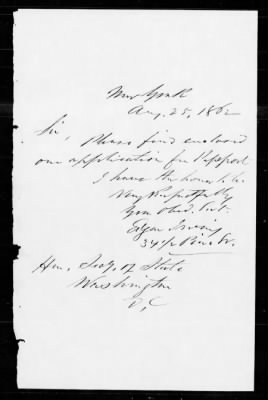 New York
Aug. 25, 1862
Sir,
Please find enclosed
one application for Passport
I have the honor to be
Very Respectfully
Your Obed. Svt.
Edgar Irving
34½ Pine St.
Hon. Secy. of State
Washington
D.C.